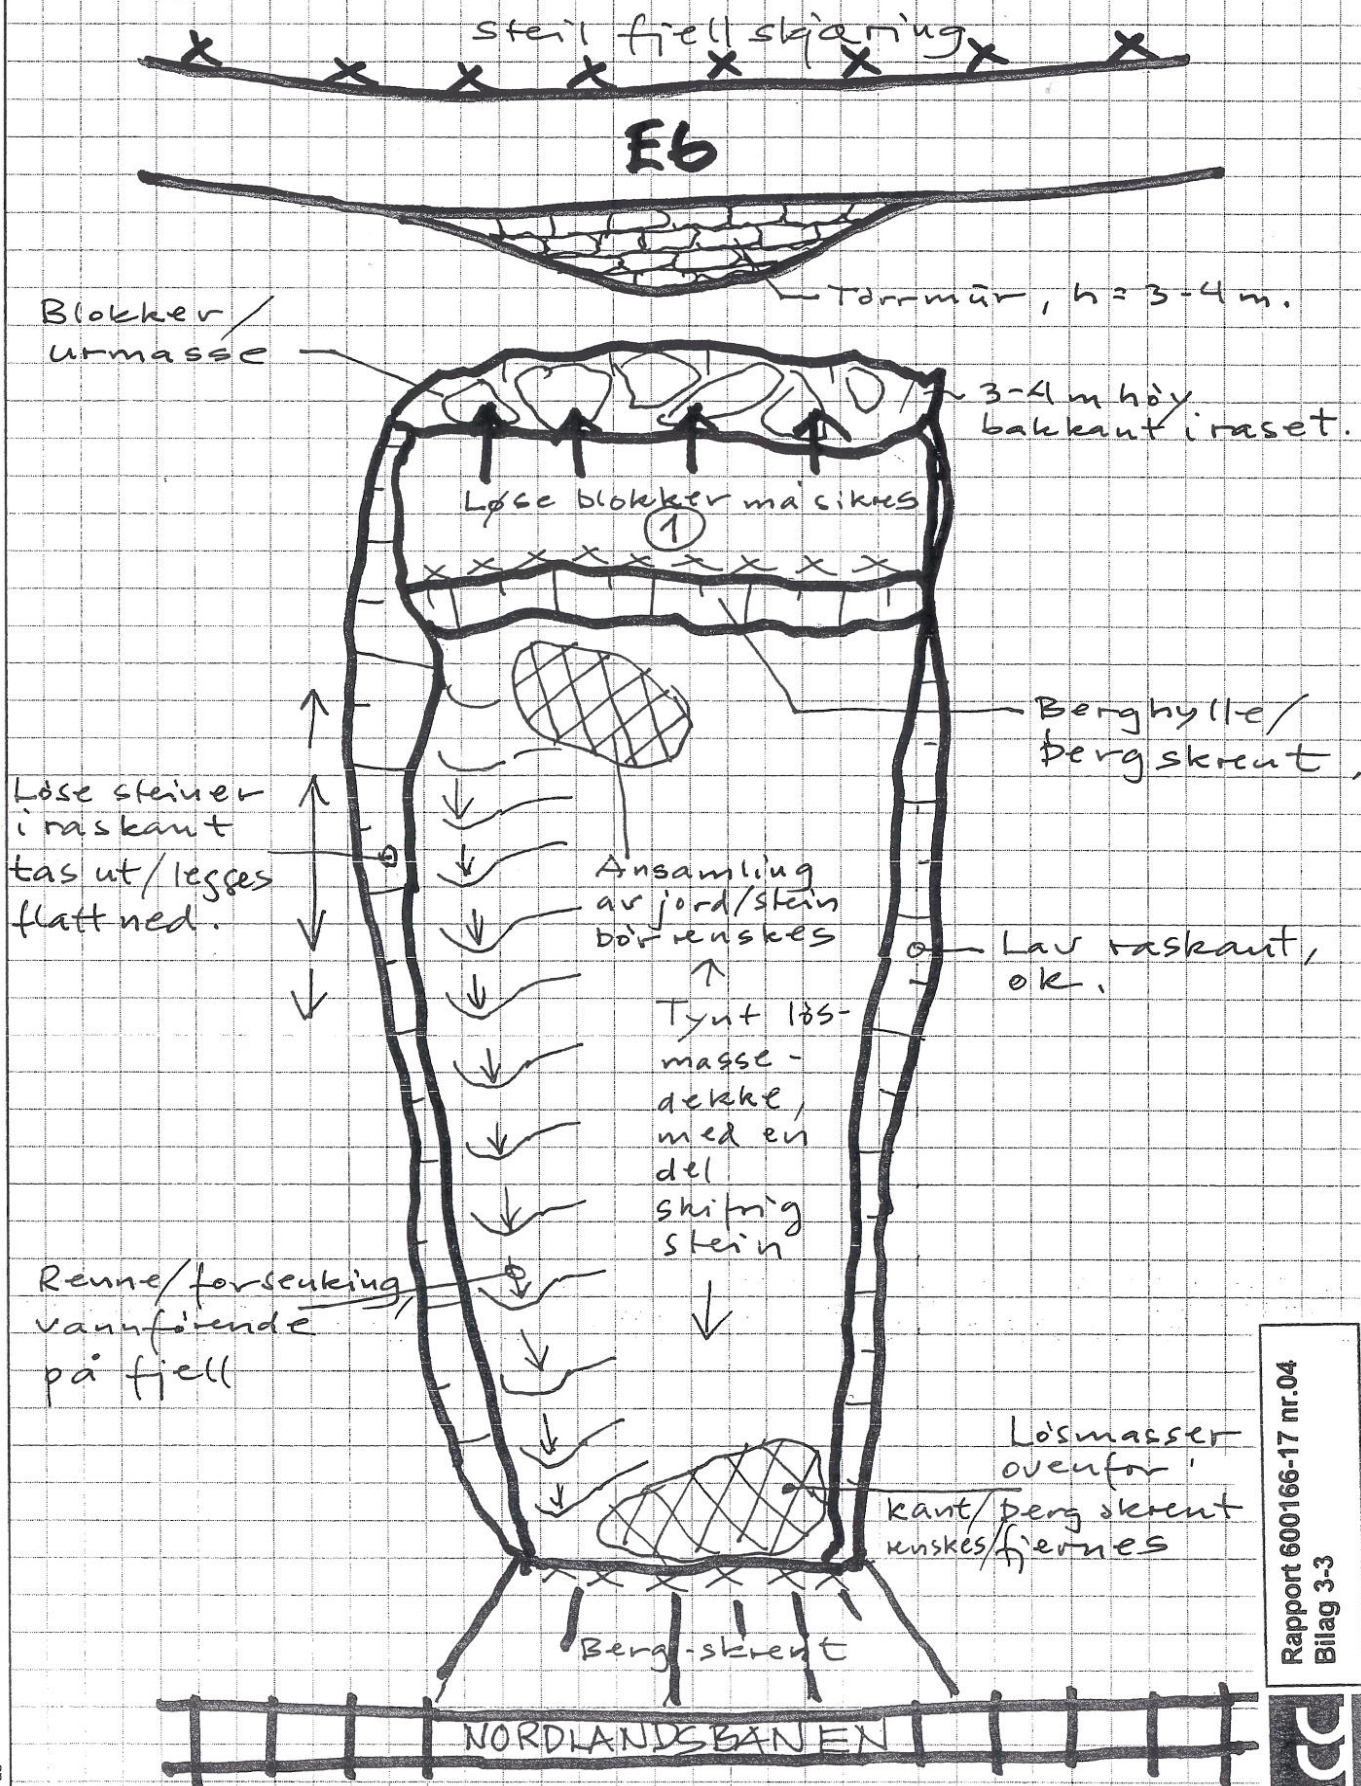 steil fjellskjæring
E6
Tørrmur, h = 3-4 m.
Blokker/
urmasse
3-4 m høy
bakkant i raset.
Løse blokker må sikres
1
Berghylle/
bergskrent
Løse steiner
i raskant
tas ut/legges
flatt ned.
Ansamling
av jord/stein
bør renskes
Lav raskant,
ok.
Tynt løs-
masse-
dekke,
med en
del
skifrig
stein
Renne/forsenking,
vannførende
på fjell
Løsmasser
ovenfor
kant/bergskrent
renskes/fjernes
Berg-skrent
NORDLANDSBANEN
Rapport 600166-17 nr.04
Bilag 3-3